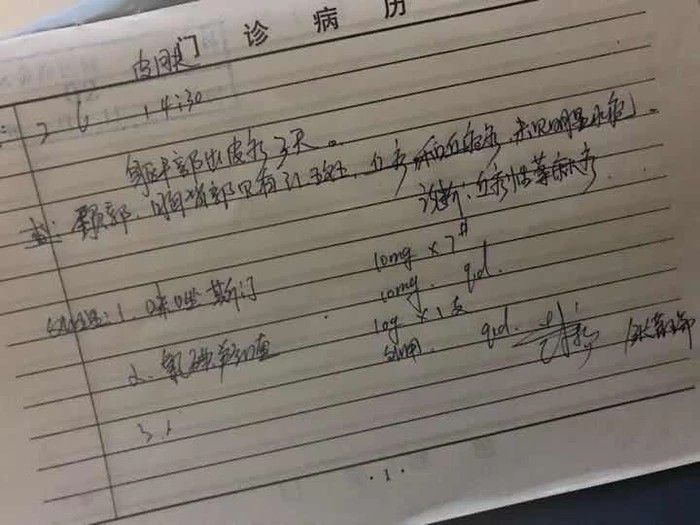 门 诊 病 历
皮肤
2 6 14:30
躯干部出皮疹3天。
颈部、胸背部见有红斑、丘疹和丘疱疹,未见明显水疱。
诊断:丘疹性荨麻疹
处理:1. 咪唑斯汀 10mg × 7#
10mg. qd.
2. 10g × 1支
外用. qd.
3.
· 1 ·